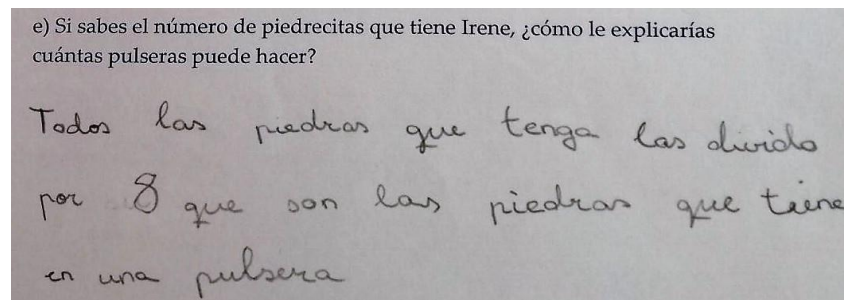 e) Si sabes el número de piedrecitas que tiene Irene, ¿cómo le explicarías
cuántas pulseras puede hacer?
Todos las piedras que tenga las divido
por 8 que son las piedras que tiene
en una pulsera